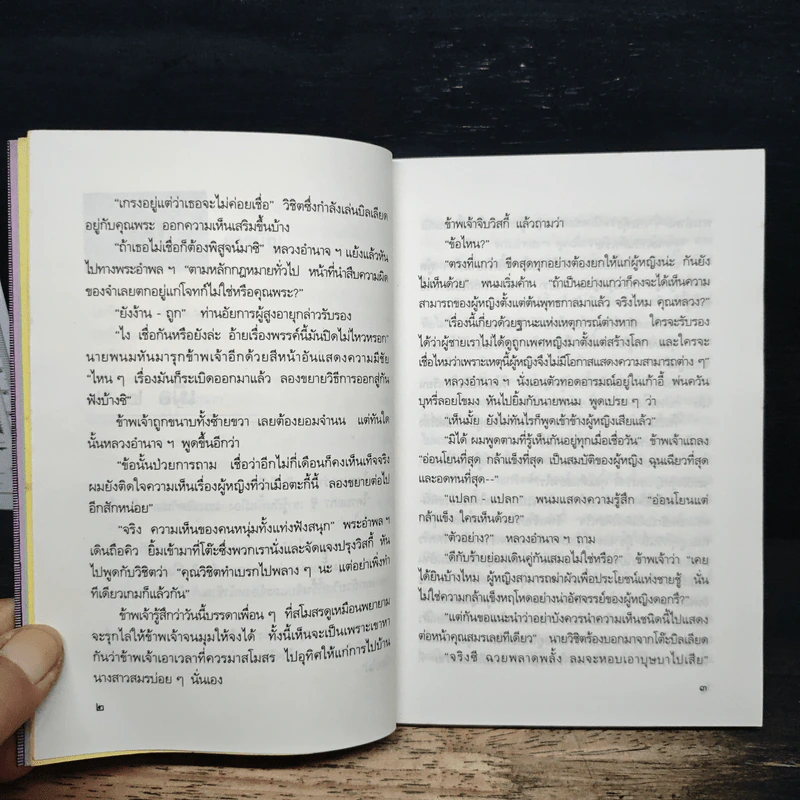 “เกรงอยู่แต่ว่าเธอจะไม่ค่อยเชื่อ” วิชิตซึ่งกำลังเล่นบิลเลียด
อยู่กับคุณพระ ออกความเห็นเสริมขึ้นบ้าง
“ถ้าเธอไม่เชื่อก็ต้องพิสูจน์มาซิ” หลวงอำนาจ ฯ แย้งแล้วหัน
ไปทางพระอำพล ฯ “ตามหลักกฎหมายทั่วไป หน้าที่นำสืบความผิด
ของจำเลยตกอยู่แก่โจทก์ไม่ใช่หรือคุณพระ?”
“ยังง้าน - ถูก” ท่านอัยการผู้สูงอายุกล่าวรับรอง
“ไง เชื่อกันหรือยังล่ะ อ้ายเรื่องพรรค์นี้มันปิดไม่ไหวหรอก”
นายพนมหันมารุกข้าพเจ้าอีกด้วยสีหน้าอันแสดงความมีชัย
“ไหน ๆ เรื่องมันก็ระเบิดออกมาแล้ว ลองขยายวิธีการออกสู่กัน
ฟังบ้างซิ”
ข้าพเจ้าถูกขนาบทั้งซ้ายขวา เลยต้องยอมจำนน แต่ทันใด
นั้นหลวงอำนาจ ฯ พูดขึ้นอีกว่า
“ข้อนั้นป่วยการถาม เชื่อว่าอีกไม่กี่เดือนก็คงเห็นเท็จจริง
ผมยังติดใจความเห็นเรื่องผู้หญิงที่ว่าเมื่อตะกี้นี้ ลองขยายต่อไป
อีกสักหน่อย”
“จริง ความเห็นของคนหนุ่มทั้งแท่งฟังสนุก” พระอำพล ฯ
เดินถือคิว ยิ้มเข้ามาที่โต๊ะซึ่งพวกเรานั่งและจัดแจงปรุงวิสกี้ หัน
ไปพูดกับวิชิตว่า “คุณวิชิตทำเบรกไปพลาง ๆ นะ แต่อย่าเพิ่งทำ
ทีเดียวเกมก็แล้วกัน”
ข้าพเจ้ารู้สึกว่าวันนี้บรรดาเพื่อน ๆ ที่สโมสรดูเหมือนพยายาม
จะรุกไล่ให้ข้าพเจ้าจนมุมให้จงได้ ทั้งนี้เห็นจะเป็นเพราะเขาหา
กันว่าข้าพเจ้าเอาเวลาที่ควรมาสโมสร ไปอุทิศให้แก่การไปบ้าน
นางสาวสมรบ่อย ๆ นั่นเอง
๒
ข้าพเจ้าจิบวิสกี้ แล้วถามว่า
“ข้อไหน?”
“ตรงที่แกว่า ขีดสุดทุกอย่างต้องยกให้แก่ผู้หญิงน่ะ กันยัง
ไม่เห็นด้วย” พนมเริ่มค้าน “ถ้าเป็นอย่างแกว่าก็คงจะได้เห็นความ
สามารถของผู้หญิงตั้งแต่ต้นพุทธกาลมาแล้ว จริงไหม คุณหลวง?”
“เรื่องนี้เกี่ยวด้วยฐานะแห่งเหตุการณ์ต่างหาก ใครจะรับรอง
ได้ว่าผู้ชายเราไม่ได้ดูถูกเพศหญิงมาตั้งแต่สร้างโลก และใครจะ
เชื่อไหมว่าเพราะเหตุนี้ผู้หญิงจึงไม่มีโอกาสแสดงความสามารถต่าง ๆ”
หลวงอำนาจ ฯ นั่งเอนตัวทอดอารมณ์อยู่ในเก้าอี้ พ่นควัน
บุหรี่ลอยโขมง หันไปยิ้มกับนายพนม พูดเปรย ๆ ว่า
“เห็นมั้ย ยังไม่ทันไรก็พูดเข้าข้างผู้หญิงเสียแล้ว”
“มิได้ ผมพูดตามที่รู้เห็นกันอยู่ทุกเมื่อเชื่อวัน” ข้าพเจ้าแถลง
“อ่อนโยนที่สุด กล้าแข็งที่สุด เป็นสมบัติของผู้หญิง ฉุนเฉียวที่สุด
และอดทนที่สุด--”
“แปลก - แปลก” พนมแสดงความรู้สึก “อ่อนโยนแต่
กล้าแข็ง ใครเห็นด้วย?”
“ตัวอย่าง?” หลวงอำนาจ ฯ ถาม
“ดีกับร้ายย่อมเดินคู่กันเสมอไม่ใช่หรือ?” ข้าพเจ้าว่า “เคย
ได้ยินบ้างไหม ผู้หญิงสามารถฆ่าผัวเพื่อประโยชน์แห่งชายชู้ นั่น
ไม่ใช่ความกล้าแข็งหฤโหดอย่างน่าอัศจรรย์ของผู้หญิงดอกรึ?”
“แต่กันขอแนะนำว่าอย่าบังควรนำความเห็นชนิดนี้ไปแสดง
ต่อหน้าคุณสมรเลยทีเดียว” นายวิชิตร้องบอกมาจากโต๊ะบิลเลียด
“จริงซี ฉวยพลาดพลั้ง ลมจะหอบเอาบุษบาไปเสีย”
๓